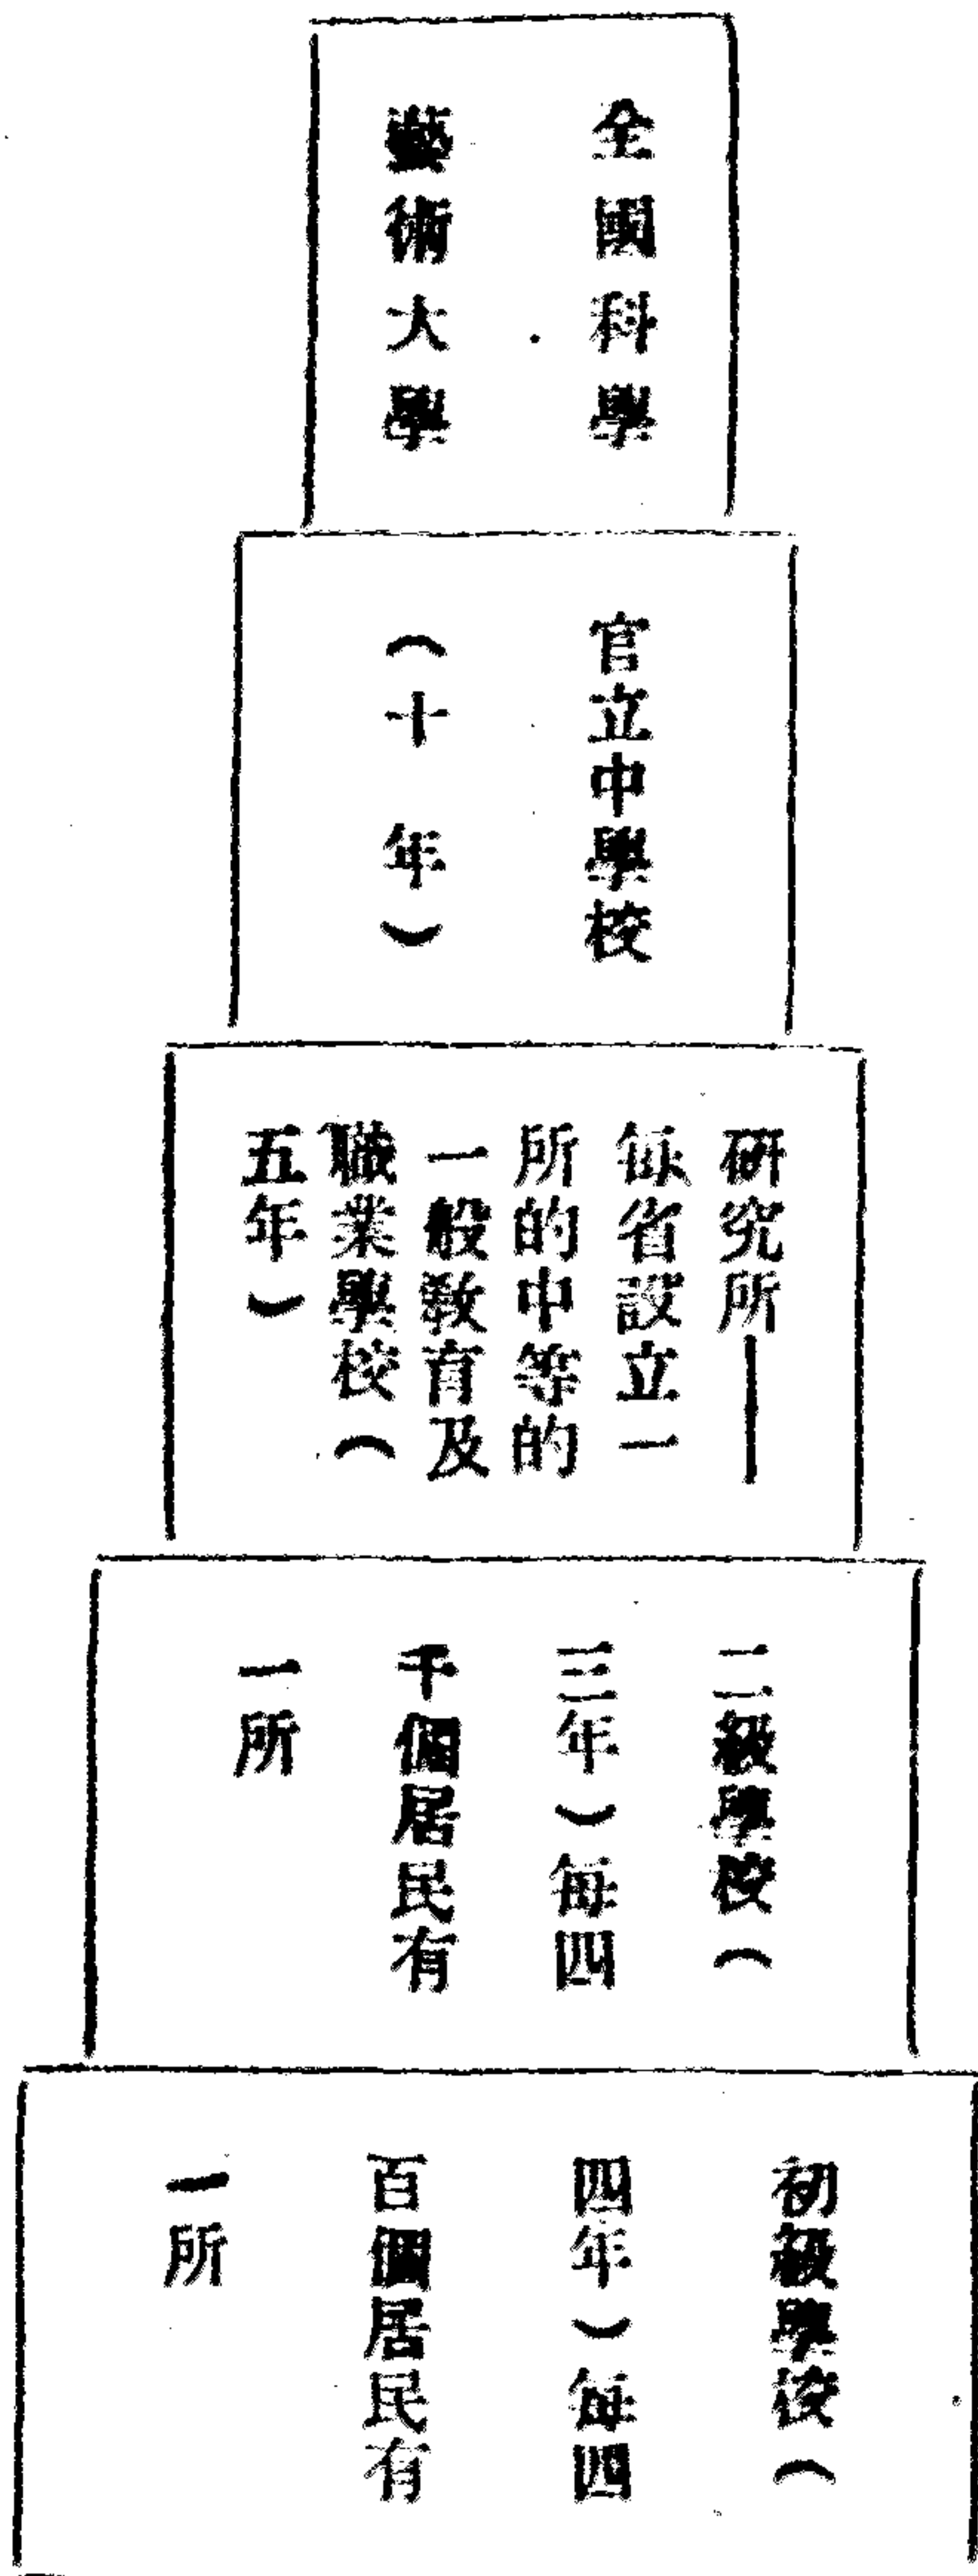 全國科學
藝術大學
官立中學校
（十年）
研究所——
每省設立一
所的中等的
一般教育及
職業學校（
五年）
二級學校（
三年）每四
千個居民有
一所
初級學校（
四年）每四
百個居民有
一所